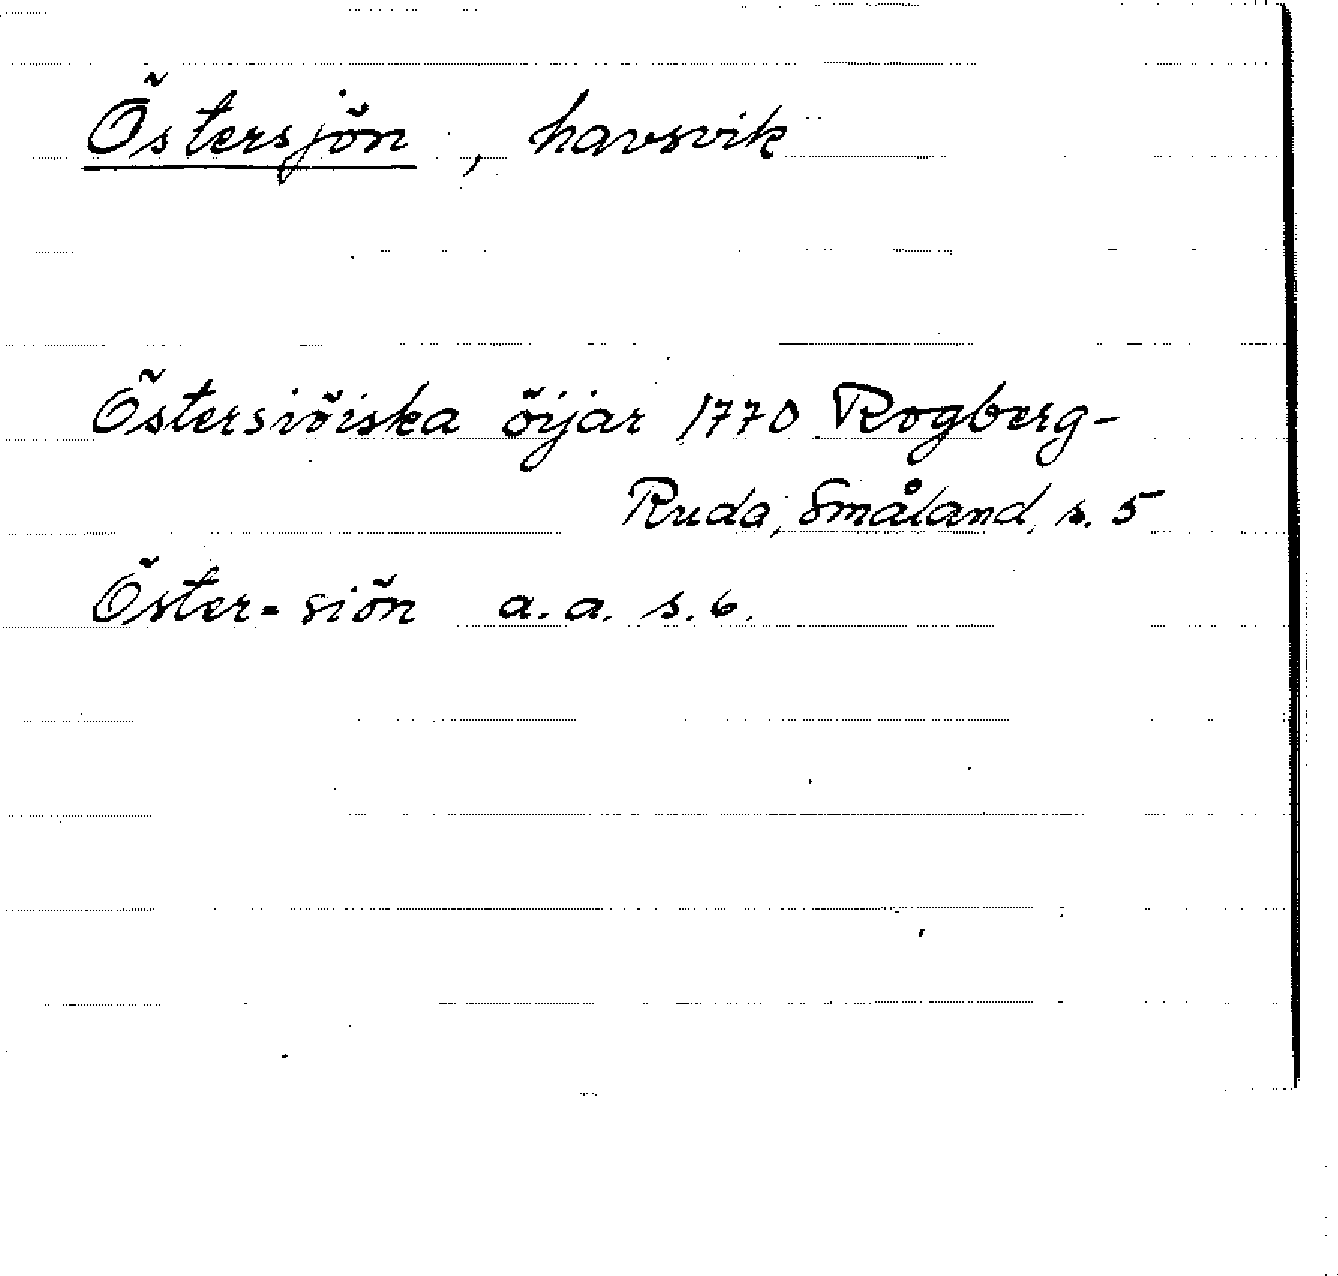 Östersjön, havsvik
Östersiöiska öijar 1770 Rogberg-
Ruda, Småland, s. 5
Öster=siön a. a. s. 6.